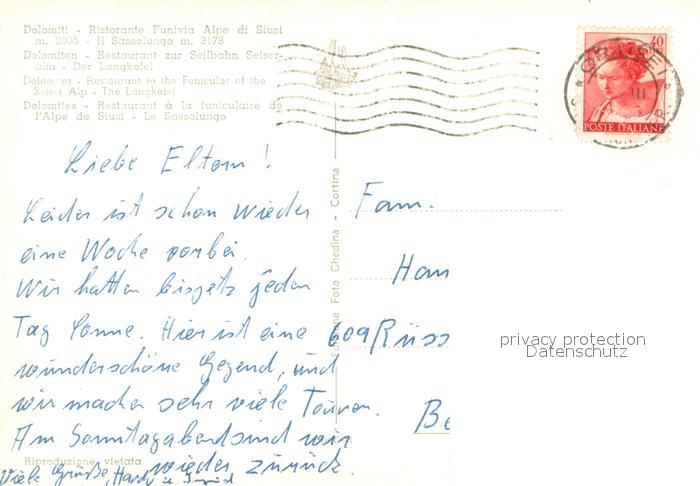 Dolomiti - Ristorante Funivia Alpe di Siusi
m. 2005 - Il Sassolungo m. 3178
Dolomiten - Restaurant zur Seilbahn Seiser-
alm - Der Langkofel
Dolomites - Restaurant to the Funicular of the
Seiser Alp - The Langkofel
Dolomites - Restaurant à la funiculaire de
l'Alpe de Siusi - Le Sassolungo
40
POSTE ITALIANE
Liebe Eltern!
Leider ist schon wieder
eine Woche vorbei.
Wir hatten bisjetz jeden
Tag Sonne. Hier ist eine
wunderschöne Gegend, und
wir machen sehr viele Touren.
Am Sonntagabend sind wir
wieder zurück.
Viele Grüße, u.
Riproduzione vietata
Edizione Foto Ghedina - Cortina
Fam.
Han
609 Rüss
Be
privacy protection
Datenschutz